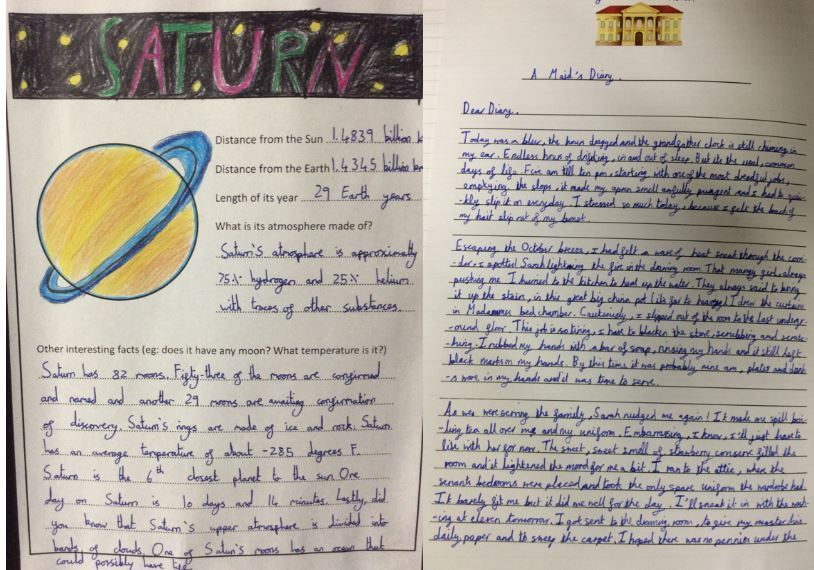 SATURN
Distance from the Sun 1.4839 billion k
Distance from the Earth 1.4345 billion km
Length of its year 29 Earth years
What is its atmosphere made of?
Saturn's atmosphere is approximately
75% hydrogen and 25% helium
with traces of other substances.
Other interesting facts (eg: does it have any moon? What temperature is it?)
Saturn has 82 moons. Fifty-three of the moons are confirmed
and named and another 29 moons are awaiting confirmation
of discovery. Saturn's rings are made of ice and rock. Saturn
has an average temperature of about -285 degrees F.
Saturn is the 6th closest planet to the sun. One
day on Saturn is 10 days and 14 minutes. Lastly, did
you know that Saturn's upper atmosphere is divided into
bands of clouds. One of Saturn's moons has an ocean that
could possibly have
A Maid's Diary.
Dear Diary,
Today was a blur, the hours dragged and the grandfather clock is still chiming in
my ear. Endless hours of drifting, in and out of sleep. But its the usual, common
days of life. Five am till ten pm, starting with one of the most dreadful jobs,
emptying the slops, it made my apron smell awfully pungent and I had to quic-
-kly slip it on everyday. I stressed so much today, because I felt the back of
my hair slip out of my bonnet.
Escaping the October breeze, I had felt a wave of heat sneak through the corri-
-dor. I spotted Sarah lightning the fire in the drawing room. That girl always
pushing me. I hurried to the kitchen to heat up the water. They always said to bring
it up the stairs, in this great big china pot like far to heavy! I drew the curtains
in Madames bed chamber. Cautiously, I slipped out of the room to the last underg-
-ound floor. This job is so tiring, I have to blacken the stove, scrubbing and
I rubbed my hands with a bar of soap, rinsing my hands and it still left
black marks on my hands. By this time it was probably nine am, plates and
in my hands and it was time to serve.
As we were serving the family, Sarah nudged me again! It made me spill boi-
-ling tea all over me and my uniform. Embarrasing, I know, I'll just have to
live with her for now. The sweet, sweet smell of strawberry conserve filled the
room and it lightened the mood for me a bit. I ran to the attic, where the
servants bedrooms were placed and took the only spare uniform the wardrobe had.
It barely fit me but it did me well for the day. I'll sneak it in with the wash-
-ing at eleven tomorrow. I got sent to the drawing room, to give my master his
daily paper and to sweep the carpet. I hoped there was no pennies under the